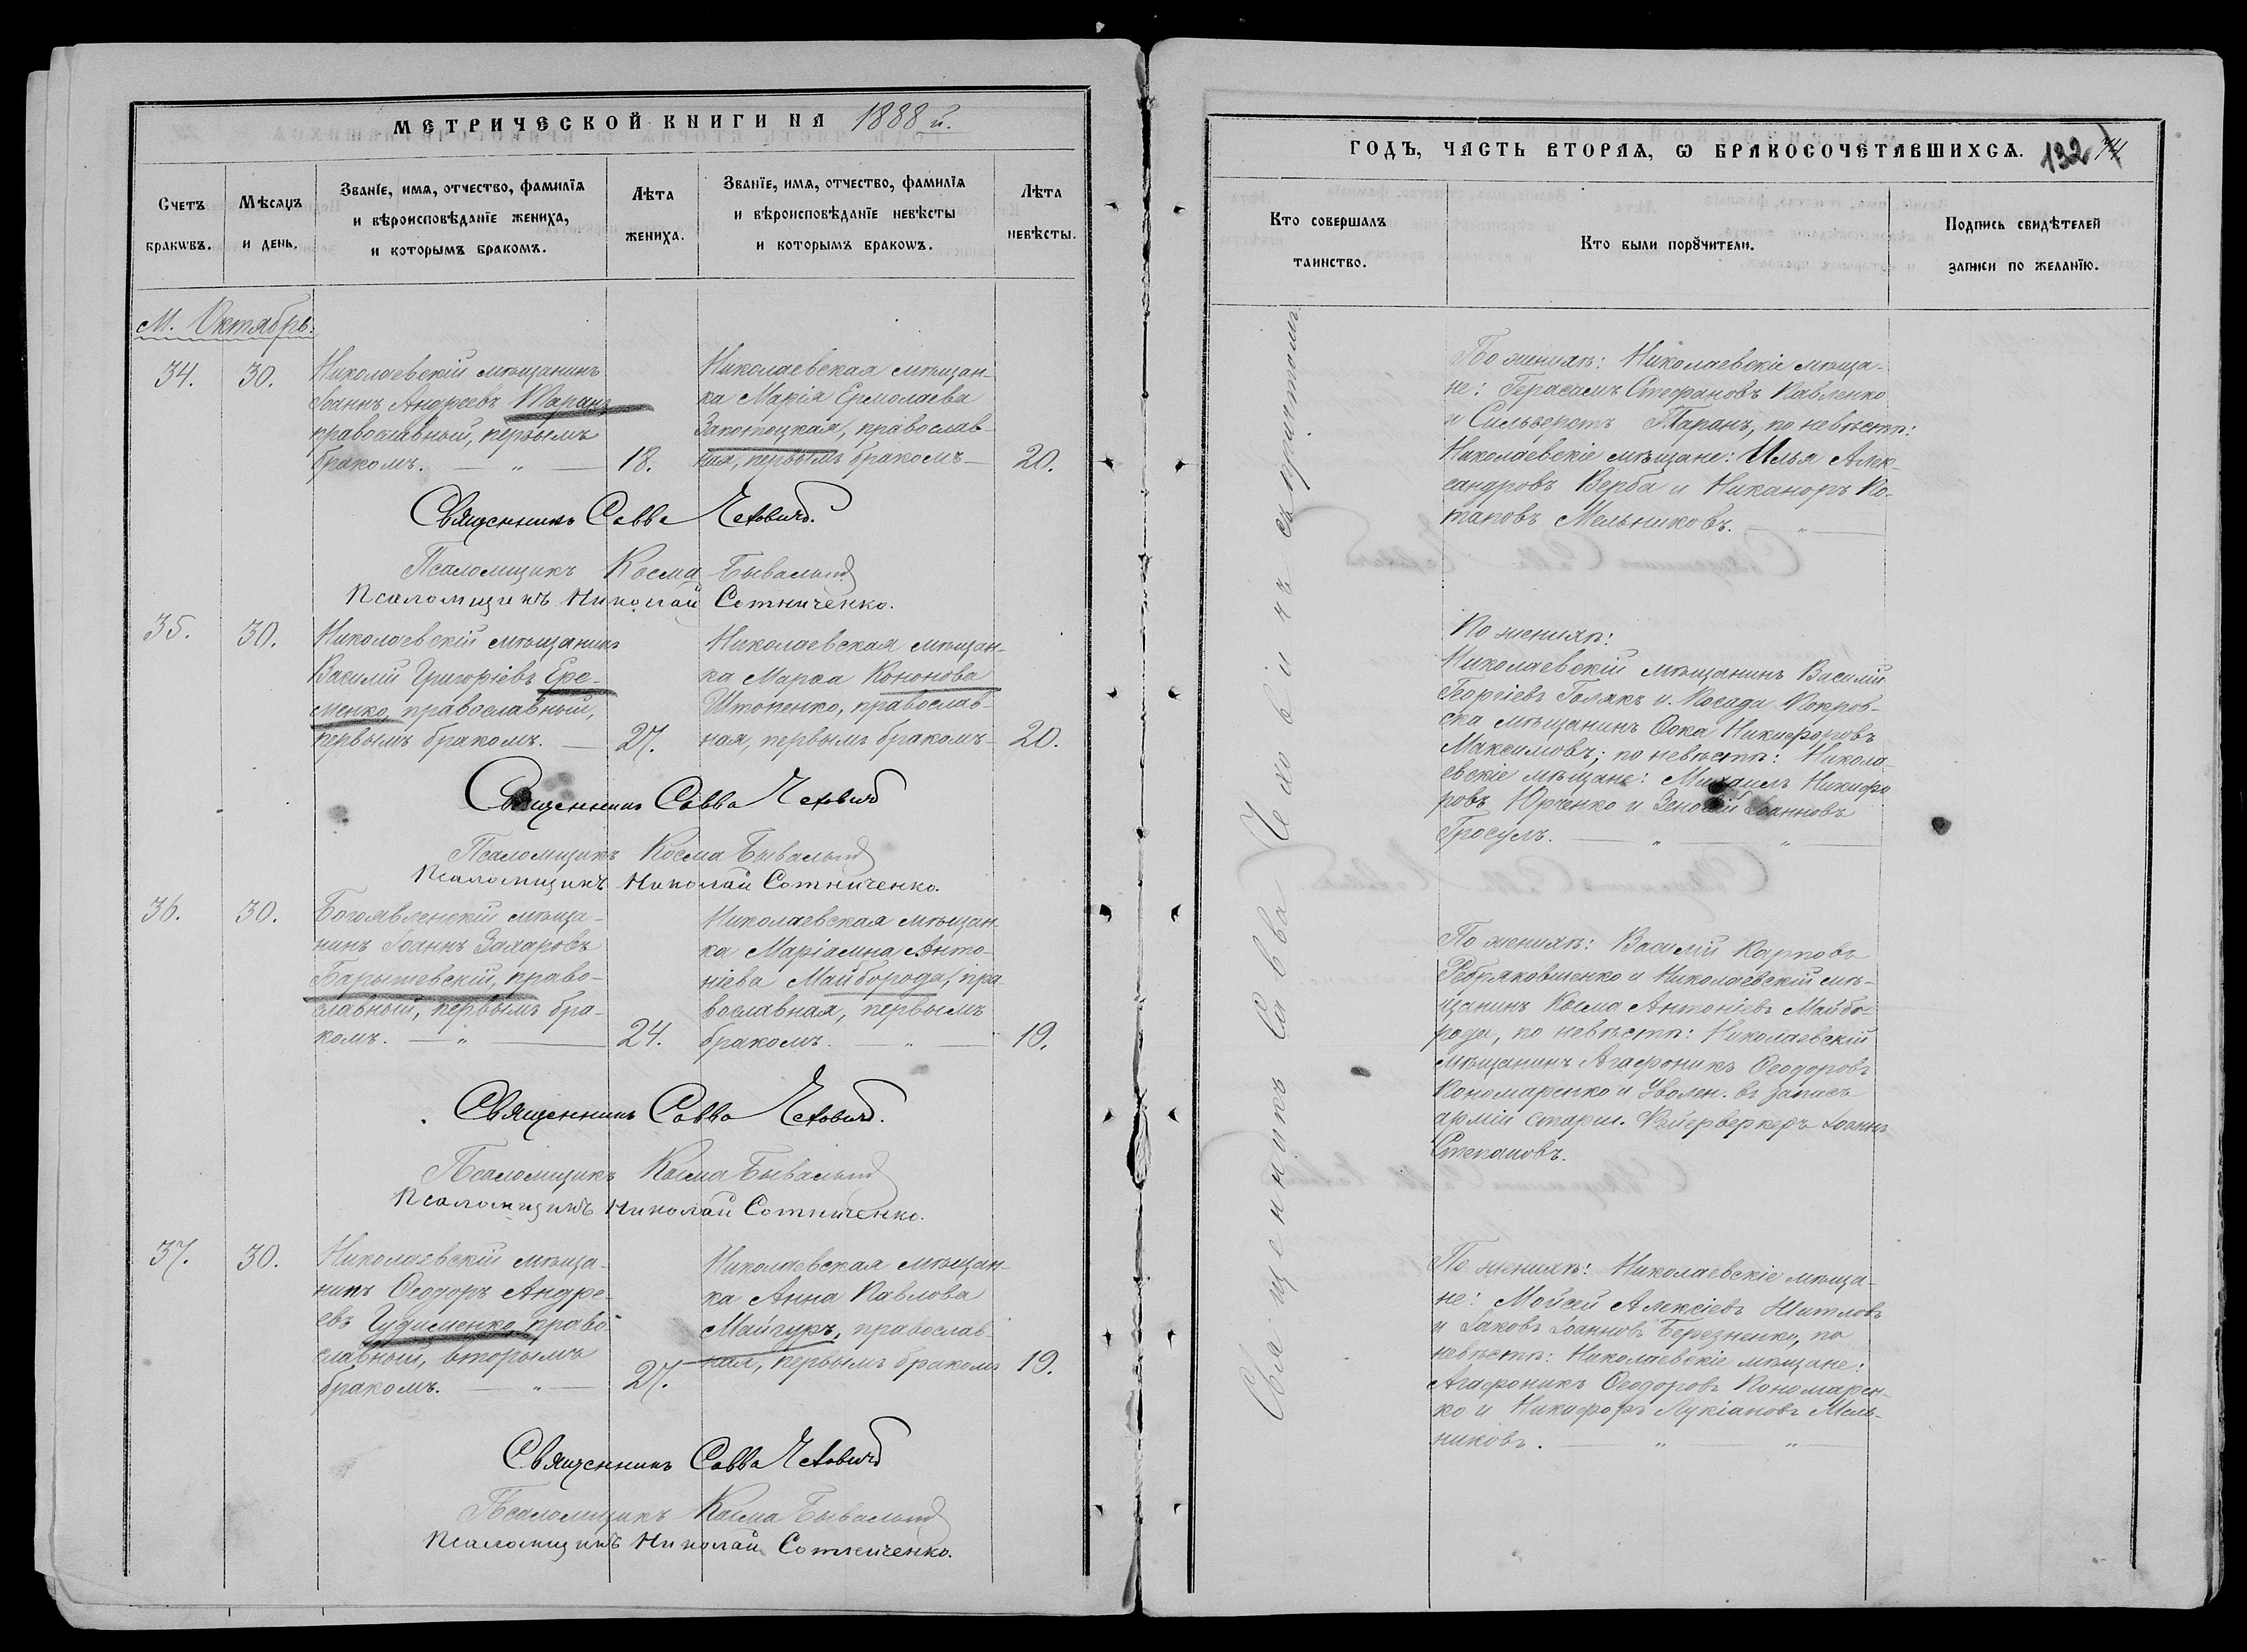 МЕТРИЧЕСКОЙ КНИГИ НА 1888 й.
Счетъ браковъ.
Мѣсяцъ и день.
Званїе, имя, отчество, фамилїя и вѣроисповѣданїе жениха, и которымъ бракомъ.
Лѣта жениха.
Званїе, имя, отчество, фамилїя и вѣроисповѣданїе невѣсты и которымъ бракомъ.
Лѣта невѣсты.
М. Октябрь.
34.
30.
Николаевскій мѣщанинъ
Іоаннъ Андреевъ Таранъ
православный, первымъ
бракомъ. — „ —
18.
Николаевская мѣщан-
ка Марія Ермолаева
православ-
ная, первымъ бракомъ —
20.
Священникъ Савва Чеховичъ.
Псаломщикъ Косма Бывалый
Псаломщикъ Николай Сотниченко.
35.
30.
Николаевскій мѣщанинъ
Василій Григоріевъ Ере-
менко, православный,
первымъ бракомъ. —
27.
Николаевская мѣщан-
ка Марѳа Кононова
Штопенко, православ-
ная, первымъ бракомъ —
20.
Священникъ Савва Чеховичъ
Псаломщикъ Косма Бывалый
Псаломщикъ Николай Сотниченко.
36.
30.
Богоявленскій мѣща-
нинъ Іоаннъ Захаровъ
Барышевскій, право-
славный, первымъ бра-
комъ. — „ —
24.
Николаевская мѣщан-
ка Маріамна Анто-
ніева Майборода, пра
вославная, первымъ
бракомъ. — „ —
19.
Священникъ Савва Чеховичъ.
Псаломщикъ Косма Бывалый
Псаломщикъ Николай Сотниченко.
37.
30.
Николаевскій мѣща-
нинъ Ѳеодоръ Андре-
евъ Гудименко, право-
славный, вторымъ
бракомъ. — „ —
27.
Николаевская мѣщан-
ка Анна Павлова
Майгуръ, православ-
ная, первымъ бракомъ
19.
Священникъ Савва Чеховичъ
Псаломщикъ Косма Бывалый
Псаломщикъ Николай Сотниченко.
ГОДЪ, ЧАСТЬ ВТОРАЯ, Ѡ БРАКОСОЧЕТАВШИХСЯ.
132
Кто совершалъ таинство.
Кто были порꙋчители.
Подпись свидѣтелей записи по желанїю.
Священникъ Савва Чеховичъ съ причтомъ
По женихѣ: Николаевскіе мѣща-
не: Герасимъ Стефановъ Павленко
и Сильвестръ Таранъ, по невѣстѣ:
Николаевскіе мѣщане: Илья Алек-
сандровъ Верба и Никаноръ По-
таповъ Мельниковъ. — „ —
По женихѣ:
Николаевскій мѣщанинъ Василій
Георгіевъ Голякъ и Посада Покров-
ска мѣщанинъ Ѳока Никифоровъ
Максимовъ; по невѣстѣ: Никола-
евскіе мѣщане: Михаилъ Никифо
ровъ Юрченко и Зеновій Іоанновъ
Гросулъ. — „ — „ —
По женихѣ: Василій Карповъ
и Николаевскій мѣ-
щанинъ Косма Антоніевъ Майбо-
рода, по невѣстѣ: Николаевскій
мѣщанинъ Агафоникъ Ѳеодоровъ
Пономаренко и Уволен. въ запасъ
арміи старш. Фейерверкеръ Іоаннъ
Степановъ.
По женихѣ: Николаевскіе мѣща-
не: Мойсей Алексіевъ Шитловъ
и Іаковъ Іоанновъ Березненко, по
невѣстѣ: Николаевскіе мѣщане:
Агафоникъ Ѳеодоровъ Пономарен-
ко и Никифоръ Лукіановъ Мель-
никовъ. — „ — „ —